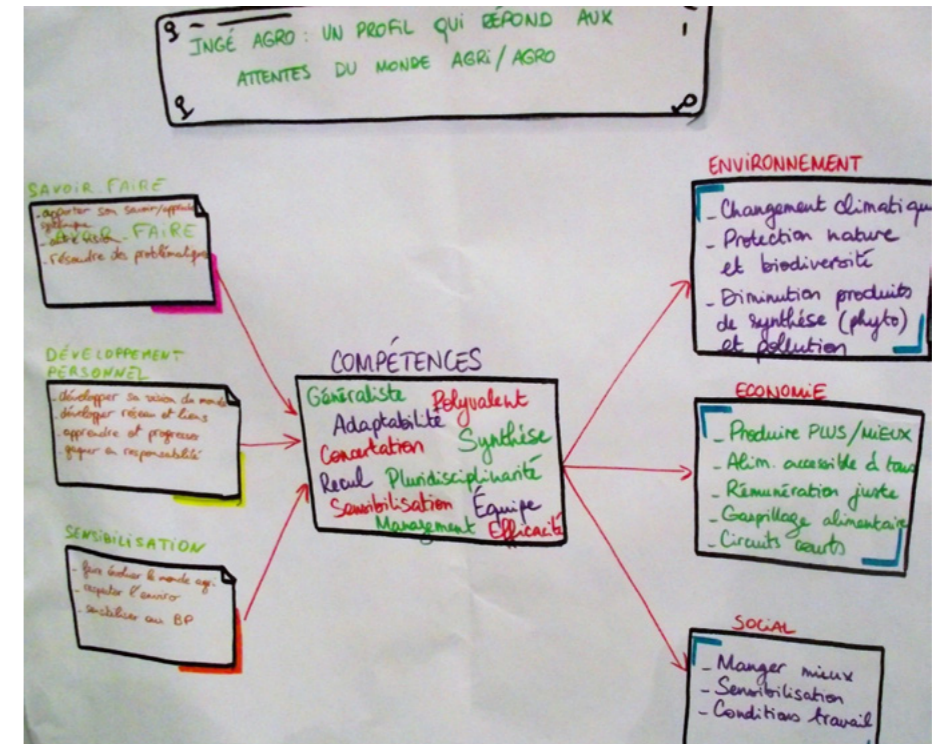 INGÉ AGRO : UN PROFIL QUI RÉPOND AUX
ATTENTES DU MONDE AGRI / AGRO
SAVOIR-FAIRE
- apporter son savoir/apprendre
SAVOIR-FAIRE
- résoudre des problématiques
DÉVELOPPEMENT
PERSONNEL
- développer sa vision du monde
- développer réseau et liens
- apprendre et progresser
- gagner en responsabilité
SENSIBILISATION
- faire évoluer le monde agri.
- respecter l'enviro
- sensibiliser aux BP
COMPÉTENCES
Généraliste Polyvalent
Adaptabilité
Concertation Synthèse
Recul Pluridisciplinarité
Sensibilisation Équipe
Management Efficacité
ENVIRONNEMENT
- Changement climatique
- Protection nature
et biodiversité
- Diminution produits
de synthèse (phyto)
et pollution
ECONOMIE
- Produire PLUS/MIEUX
- Alim. accessible à tous
- Rémunération juste
- Gaspillage alimentaire
- Circuits courts
SOCIAL
- Manger mieux
- Sensibilisation
- Conditions travail